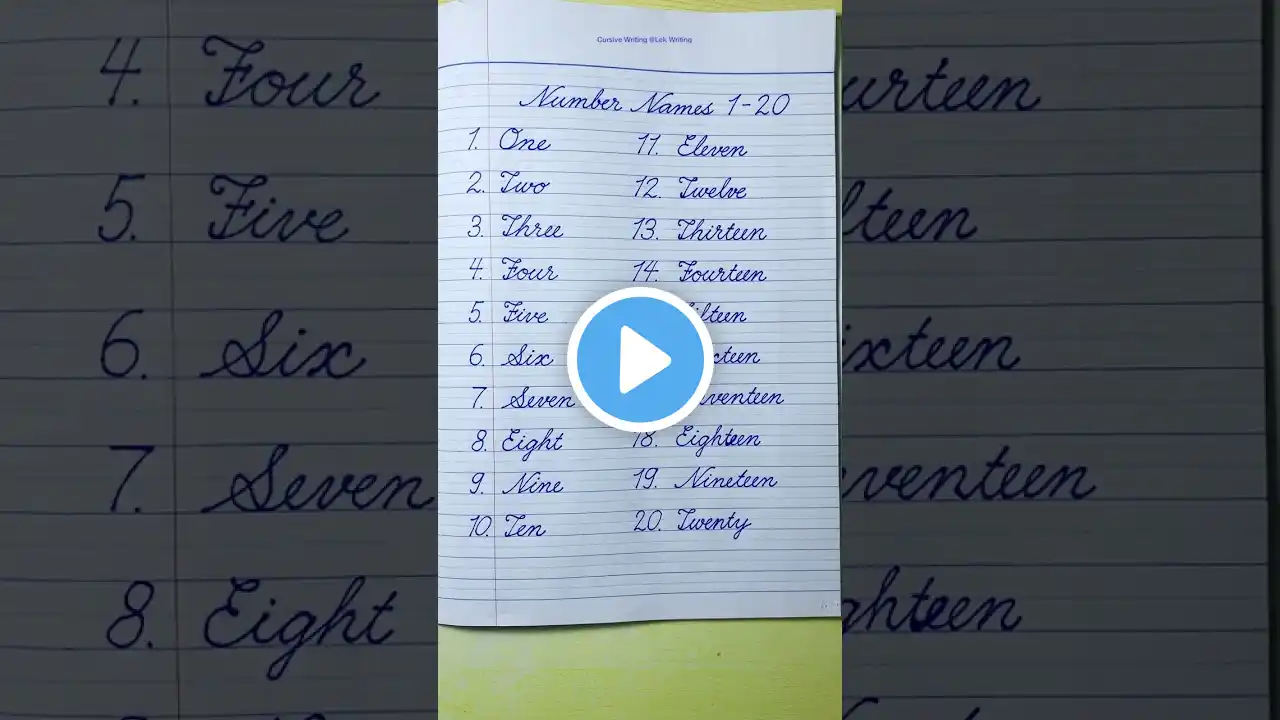 Cursive Writing @Lek Writing
Number Names 1-20
1. One
2. Two
3. Three
4. Four
5. Five
6. Six
7. Seven
8. Eight
9. Nine
10. Ten
11. Eleven
12. Twelve
13. Thirteen
14. Fourteen
18. Eighteen
19. Nineteen
20. Twenty